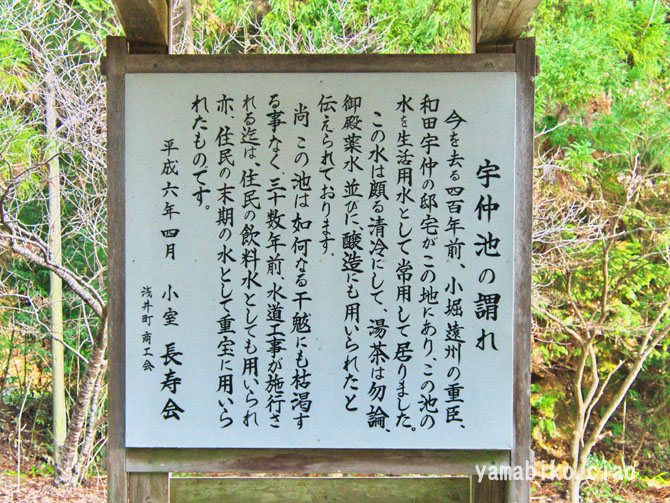 宇仲池の謂れ
今を去る四百年前、小堀遠州の重臣、
和田宇仲の邸宅がこの地にあり、この池の
水を生活用水として常用して居りました。
この水は頗る清冷にして、湯茶は勿論、
御殿薬水並びに、醸造にも用いられたと
伝えられております。
尚この池は如何なる干魃にも枯渇す
る事なく、三十数年前、水道工事が施行さ
れる迄は、住民の飲料水としても用いられ
亦、住民の末期の水として重宝に用いら
れたものです。
平成六年四月 小室 長寿会
浅井町商工会
yamabiko ciao